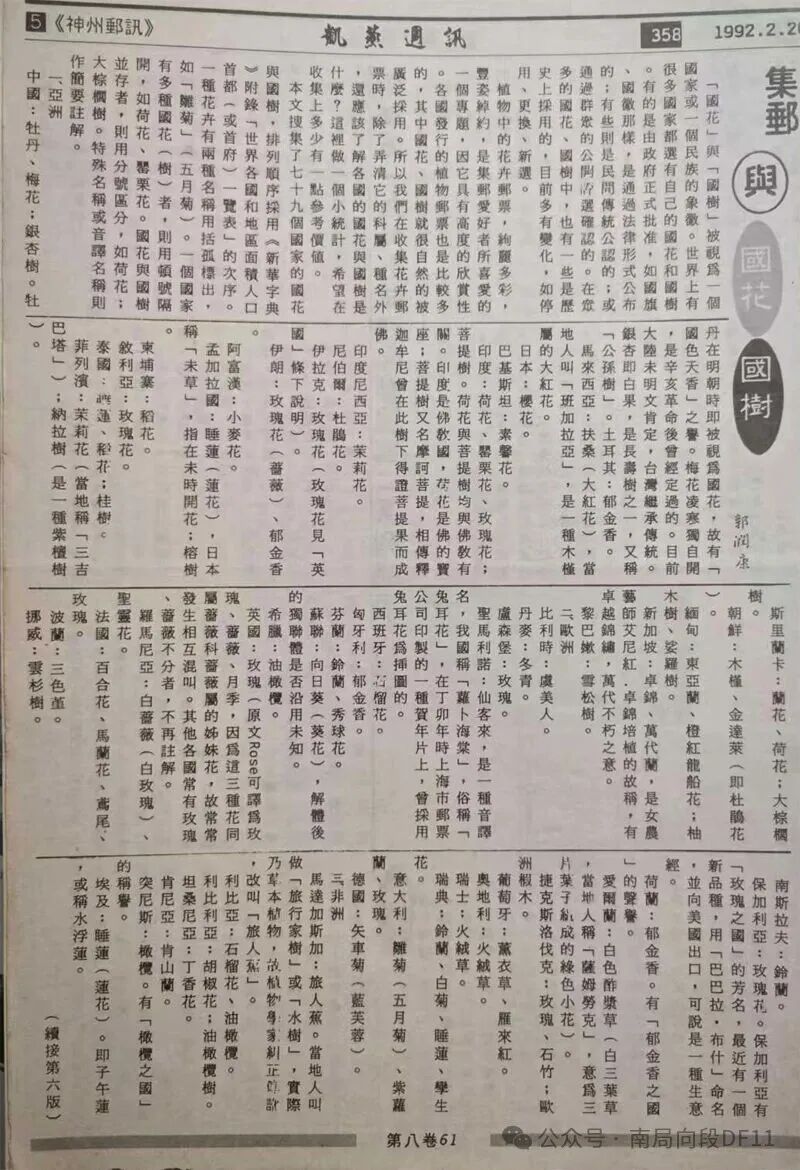 5《神州郵訊》
凱蒸週訊
358
1992.2.20
集郵
與
國花
國樹
郭潤康
「國花」與「國樹」被視爲一個
國家或一個民族的象徵。世界上有
很多國家都選有自己的國花和國樹
。有的是由政府正式批准，如國旗
、國徽那樣，是通過法律形式公布
的；有些則是民間傳統公認的；或
通過群眾的公開評選確認的。在眾
多的國花、國樹中，也有一些是歷
史上採用的，目前多有變化，如停
用、更換、新選。
植物中的花卉郵票，絢麗多彩，
豐姿綽約，是集郵愛好者所喜愛的
一個專題，因它具有高度的欣賞性
。各國發行的植物郵票也是比較多
的，其中國花、國樹就很自然的被
廣泛採用。所以我們在收集花卉郵
票時，除了弄清它的科屬、種名外
，還應該了解各國的國花與國樹是
什麼？這裡做一個小統計，希望在
收集上多少有一點參考價值。
本文搜集了七十九個國家的國花
與國樹，排列順序採用《新華字典
》附錄「世界各國和地區面積人口
首都（或首府）一覽表」的次序。
一種花卉有兩種名稱用括弧標出，
如「雛菊」（五月菊）。一個國家
有多種國花（樹）者，則用頓號隔
開，如荷花、罌粟花。國花與國樹
並存者，則用分號區分，如荷花；
大棕櫚樹。特殊名稱或音譯名稱則
作簡要註解。
一、亞洲
中國：牡丹、梅花；銀杏樹。牡
丹在明朝時即被視爲國花，故有「
國色天香」之譽。梅花凌寒獨自開
，是辛亥革命後曾經定過的。目前
大陸未明文肯定，台灣繼承傳統。
銀杏即白果，是長壽樹之一，又稱
「公孫樹」。土耳其：郁金香。
馬來西亞：扶桑（大紅花），當
地人叫「班加拉亞」，是一種木槿
屬的大紅花。
日本：櫻花。
巴基斯坦：素馨花。
印度：荷花、罌粟花、玫瑰花；
菩提樹。荷花與菩提樹均與佛教有
關。印度是佛教國，荷花是佛的寶
座；菩提樹又名摩訶菩提，相傳釋
迦牟尼曾在此樹下得證菩提果而成
佛。
印度尼西亞：茉莉花。
尼伯爾：杜鵑花。
伊拉克：玫瑰花（玫瑰花見「英
國」條下說明）。
伊朗：玫瑰花（薔薇）、郁金香
。
阿富汗：小麥花。
孟加拉國：睡蓮（蓮花），日本
稱「未草」，指在未時開花；榕樹
。
柬埔寨：稻花。
敘利亞：玫瑰花。
泰國：睡蓮、稻花；桂樹。
菲列濱：茉莉花（當地稱「三吉
巴塔」）；納拉樹（是一種紫檀樹
）。
斯里蘭卡：蘭花、荷花；大棕櫚
樹。
朝鮮：木槿、金達萊（即杜鵑花
）。
緬甸：東亞蘭、橙紅龍船花；柚
木樹、娑羅樹。
新加坡：卓錦、萬代蘭，是女農
藝師艾尼紅·卓錦培植的故稱，有
卓越錦繡，萬代不朽之意。
黎巴嫩：雪松樹。
二、歐洲
比利時：虞美人。
丹麥：冬青。
盧森堡：玫瑰。
聖馬利諾：仙客來，是一種音譯
名，我國稱「蘿卜海棠」，俗稱「
兔耳花」，在丁卯年時上海市郵票
公司印製的一種賀年片上，曾採用
兔耳花爲挿圖的。
西班牙：石榴花。
匈牙利：郁金香。
芬蘭：鈴蘭、秀球花。
蘇聯：向日葵（葵花），解體後
的獨聯體是否沿用未知。
希臘：油橄欖。
英國：玫瑰（原文Rose可譯爲玫
瑰、薔薇、月季，因爲這三種花同
屬薔薇科薔薇屬的姊妹花，故常常
發生相互混叫。其他各國常有玫瑰
、薔薇不分者，不再註解。
羅馬尼亞：白薔薇（白玫瑰）、
聖靈花。
法國：百合花、馬蘭花、鳶尾、
玫瑰。
波蘭：三色堇。
挪威：雲杉樹。
南斯拉夫：鈴蘭。
保加利亞：玫瑰花。保加利亞有
「玫瑰之國」的芳名，最近有一個
新品種，用「巴巴拉·布什」命名
，並向美國出口，可說是一種生意
經。
荷蘭：郁金香。有「郁金香之國
」的聲譽。
愛爾蘭：白色酢漿草（白三葉草
，當地人稱「薩姆勞克」，意爲三
片葉子組成的綠色小花）。
捷克斯洛伐克：玫瑰、石竹；歐
洲椴木。
葡萄牙：薰衣草、雁來紅。
奧地利：火絨草。
瑞士：火絨草。
瑞典：鈴蘭、白菊、睡蓮、孿生
花。
意大利：雛菊（五月菊）、紫蘿
蘭、玫瑰。
德國：矢車菊（藍芙蓉）。
三、非洲
馬達加斯加：旅人蕉。當地人叫
做「旅行家樹」或「水樹」，實際
乃草本植物，故植物學家糾正
，改叫「旅人蕉」。
利比亞：石榴花、油橄欖。
利比利亞：胡椒花；油橄欖樹。
坦桑尼亞：丁香花。
肯尼亞：肯山蘭。
突尼斯：橄欖。有「橄欖之國」
的稱譽。
埃及：睡蓮（蓮花）。即子午蓮
，或稱水浮蓮。
（續接第六版）
第八卷61
公众号·南局向段DF11